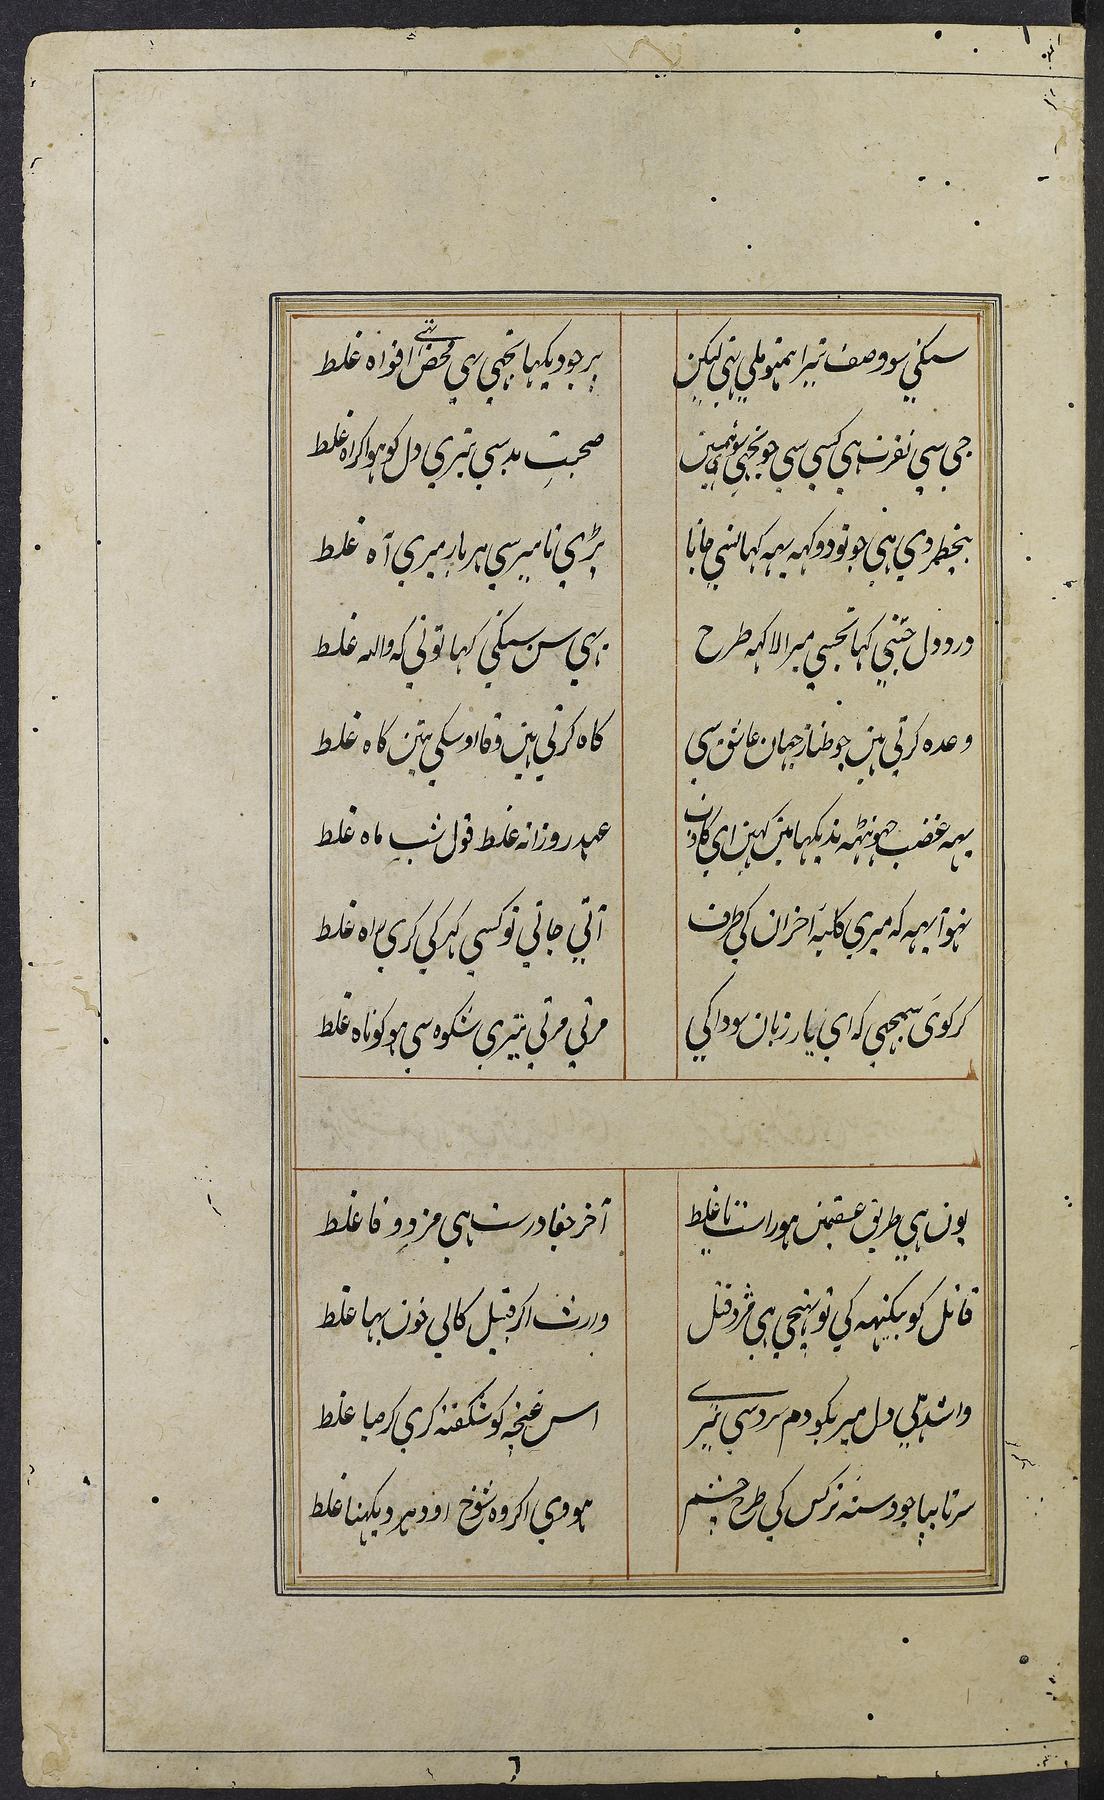 سنکی سو وصف تیرا ہمتو ملی ہتی لیکن
پر جو دیکہا تجہی ہی محض افواہ غلط
جی سی نفرت ہی کسی سی جو تجہی سو ہمین
صحبت بد سی تیری دل کو ہوا اکراہ غلط
دی ہی جو تو دوکہہ یہہ کہا
پڑی تاثیر سی ہر بار میری آہ غلط
درد دل جتنی کہا تجسی میرا لاکہہ طرح
یہی سن سنکی کہا تونی کہ واللہ غلط
وعدہ کرتی ہین جو طناز جہان عاشق سی
کاہ کرتی ہین وفا اوسکی تین کاہ غلط
یہہ غضب جہونٹہہ ندیکہا مین کہین ای کاذب
عہد روزانہ غلط قول شب ماہ غلط
نہوا یہہ کہ میری کلبۂ احزان کی طرف
آتی جاتی تو کسی کہر کی کری راہ غلط
کر کوئی سمجہی کہ ای یار زبان سودا کی
مرتی مرتی تیری شکوہ سی ہو کوتاہ غلط
یون ہی طریق عشقمین ہو راست یا غلط
آخر جفا درست ہی مزد وفا غلط
قاتل کو بیکنہہ کی تو پہنچی ہی مزد قتل
وارث اکر قتیل کا لی خون بہا غلط
واشد ملی دل میریکو دم سرد سی تیری
اس غنچہ کو شکفتہ کری کر صبا غلط
سرتا بپا جو دستہ نرکس کی طرح چشم
ہووی اکر وہ شوخ اودہر دیکہنا غلط